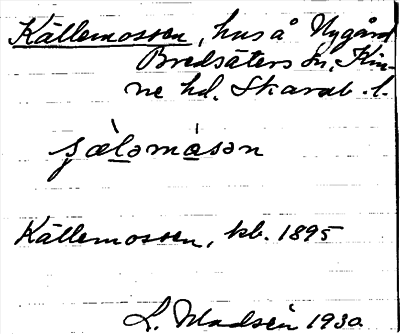 Källemossen, hus å Nygård
Bredsäters sn, Kin-
ne hd. Skarab. l.
sjæ̀ləmåsən
Källemossen, kb. 1895
L. Madsén 1930